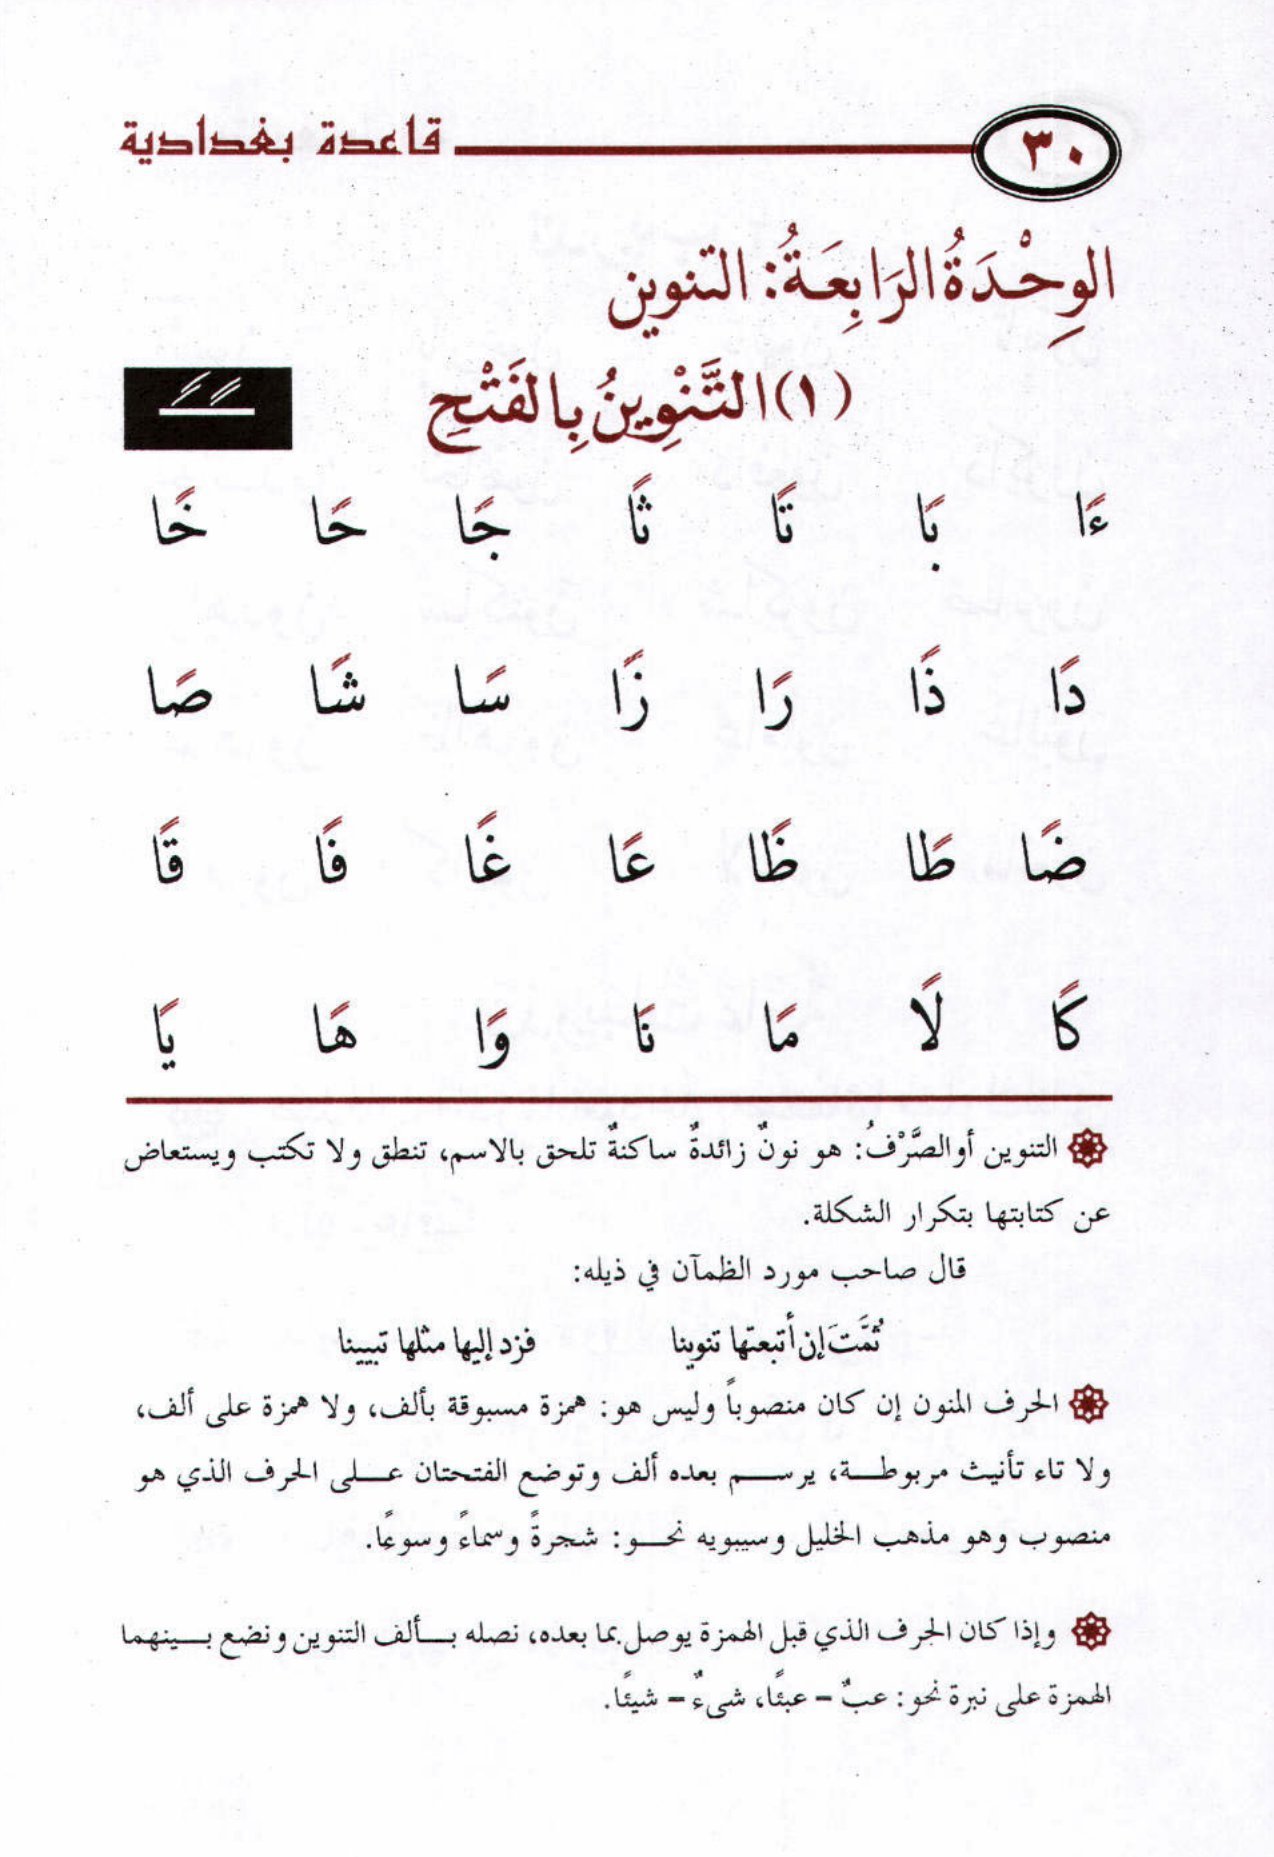 ٣٠ قاعدة بغدادية
الوِحْدَةُ الرَابِعَةُ: التنوين
(١) التَّنْوِينُ بِالفَتْحِ
ءًا بًا تًا ثًا جًا حًا خًا
دًا ذًا رًا زًا سًا شًا صًا
ضًا طًا ظًا عًا غًا فًا قًا
كًا لًا مًا نًا وًا هًا يًا
التنوين أوالصَّرْفُ: هو نونٌ زائدةٌ ساكنةٌ تلحق بالاسم، تنطق ولا تكتب ويستعاض
عن كتابتها بتكرار الشكلة.
قال صاحب مورد الظمآن في ذيله:
ثُمَّتَ إن أتبعتها تنوينا فزد إليها مثلها تبيينا
الحرف المنون إن كان منصوباً وليس هو: همزة مسبوقة بألف، ولا همزة على ألف،
ولا تاء تأنيث مربوطـة، يرسـم بعده ألف وتوضع الفتحتان علـى الحرف الذي هو
منصوب وهو مذهب الخليل وسيبويه نحـو: شجرةً وسماءً وسوءًا.
وإذا كان الحرف الذي قبل الهمزة يوصل بما بعده، نصله بـألف التنوين ونضع بـينهما
الهمزة على نبرة نحو: عبٌ – عبئًا، شىءٌ – شيئًا.